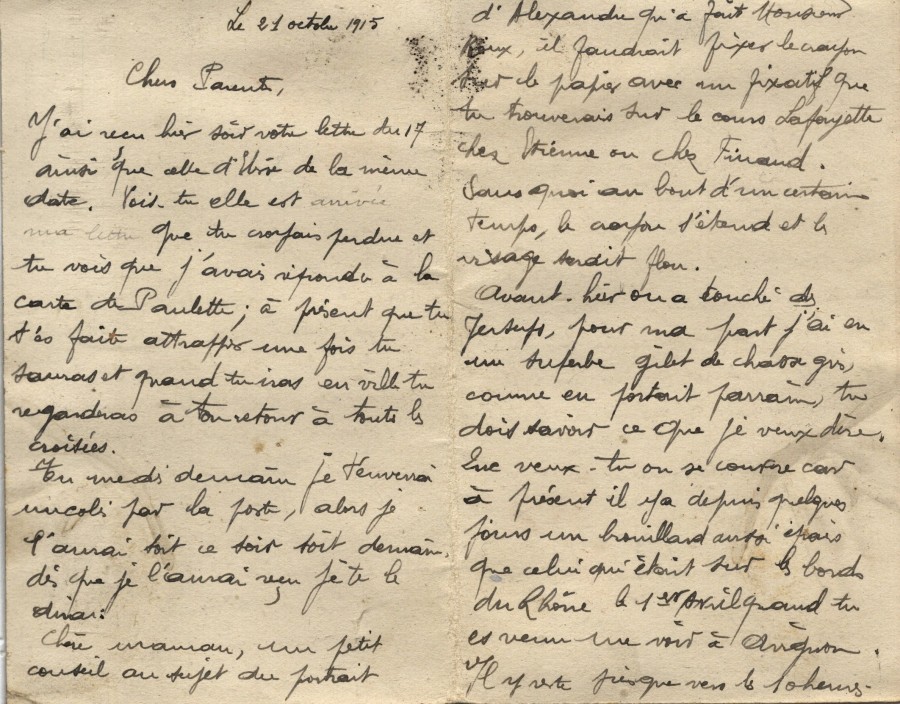 Le 21 octobre 1915
Chers Parents,
J'ai reçu hier soir votre lettre du 17
ainsi que celle d'Elise de la même
date. Vois-tu elle est arrivée
ma lettre que tu croyais perdue et
tu vois que j'avais répondu à la
carte de Paulette; à présent que tu
t'es faite attrapper une fois tu
sauras et quand tu iras en ville tu
regarderas à ton retour à toute les
croisées.
Tu me dis demain je t'enverrai
un colis par la poste, alors je
l'aurai soit ce soir soit demain,
dès que je l'aurai reçu je te le
dirai.
Chère maman, un petit
conseil au sujet du portrait
d'Alexandre qu'a fait Monsieur
Roux, il faudrait fixer le crayon
sur le papier avec un fixatif que
tu trouverais sur le cours Lafayette
chez Etienne ou chez Finaud.
Sans quoi au bout d'un certain
temps, le crayon s'étend et le
visage serait flou.
Avant-hier on a touché des
Jerseys, pour ma part j'ai eu
un superbe gilet de chasse gris,
comme en portait parrain, tu
dois savoir ce que je veux dire.
Que veux-tu on se couvre car
à présent il y a depuis quelques
jours un brouillard aussi épais
que celui qui était sur les bords
du Rhône le 1er Avril quand tu
es venu me voir à Avignon.
Il y reste presque vers les 10 heures